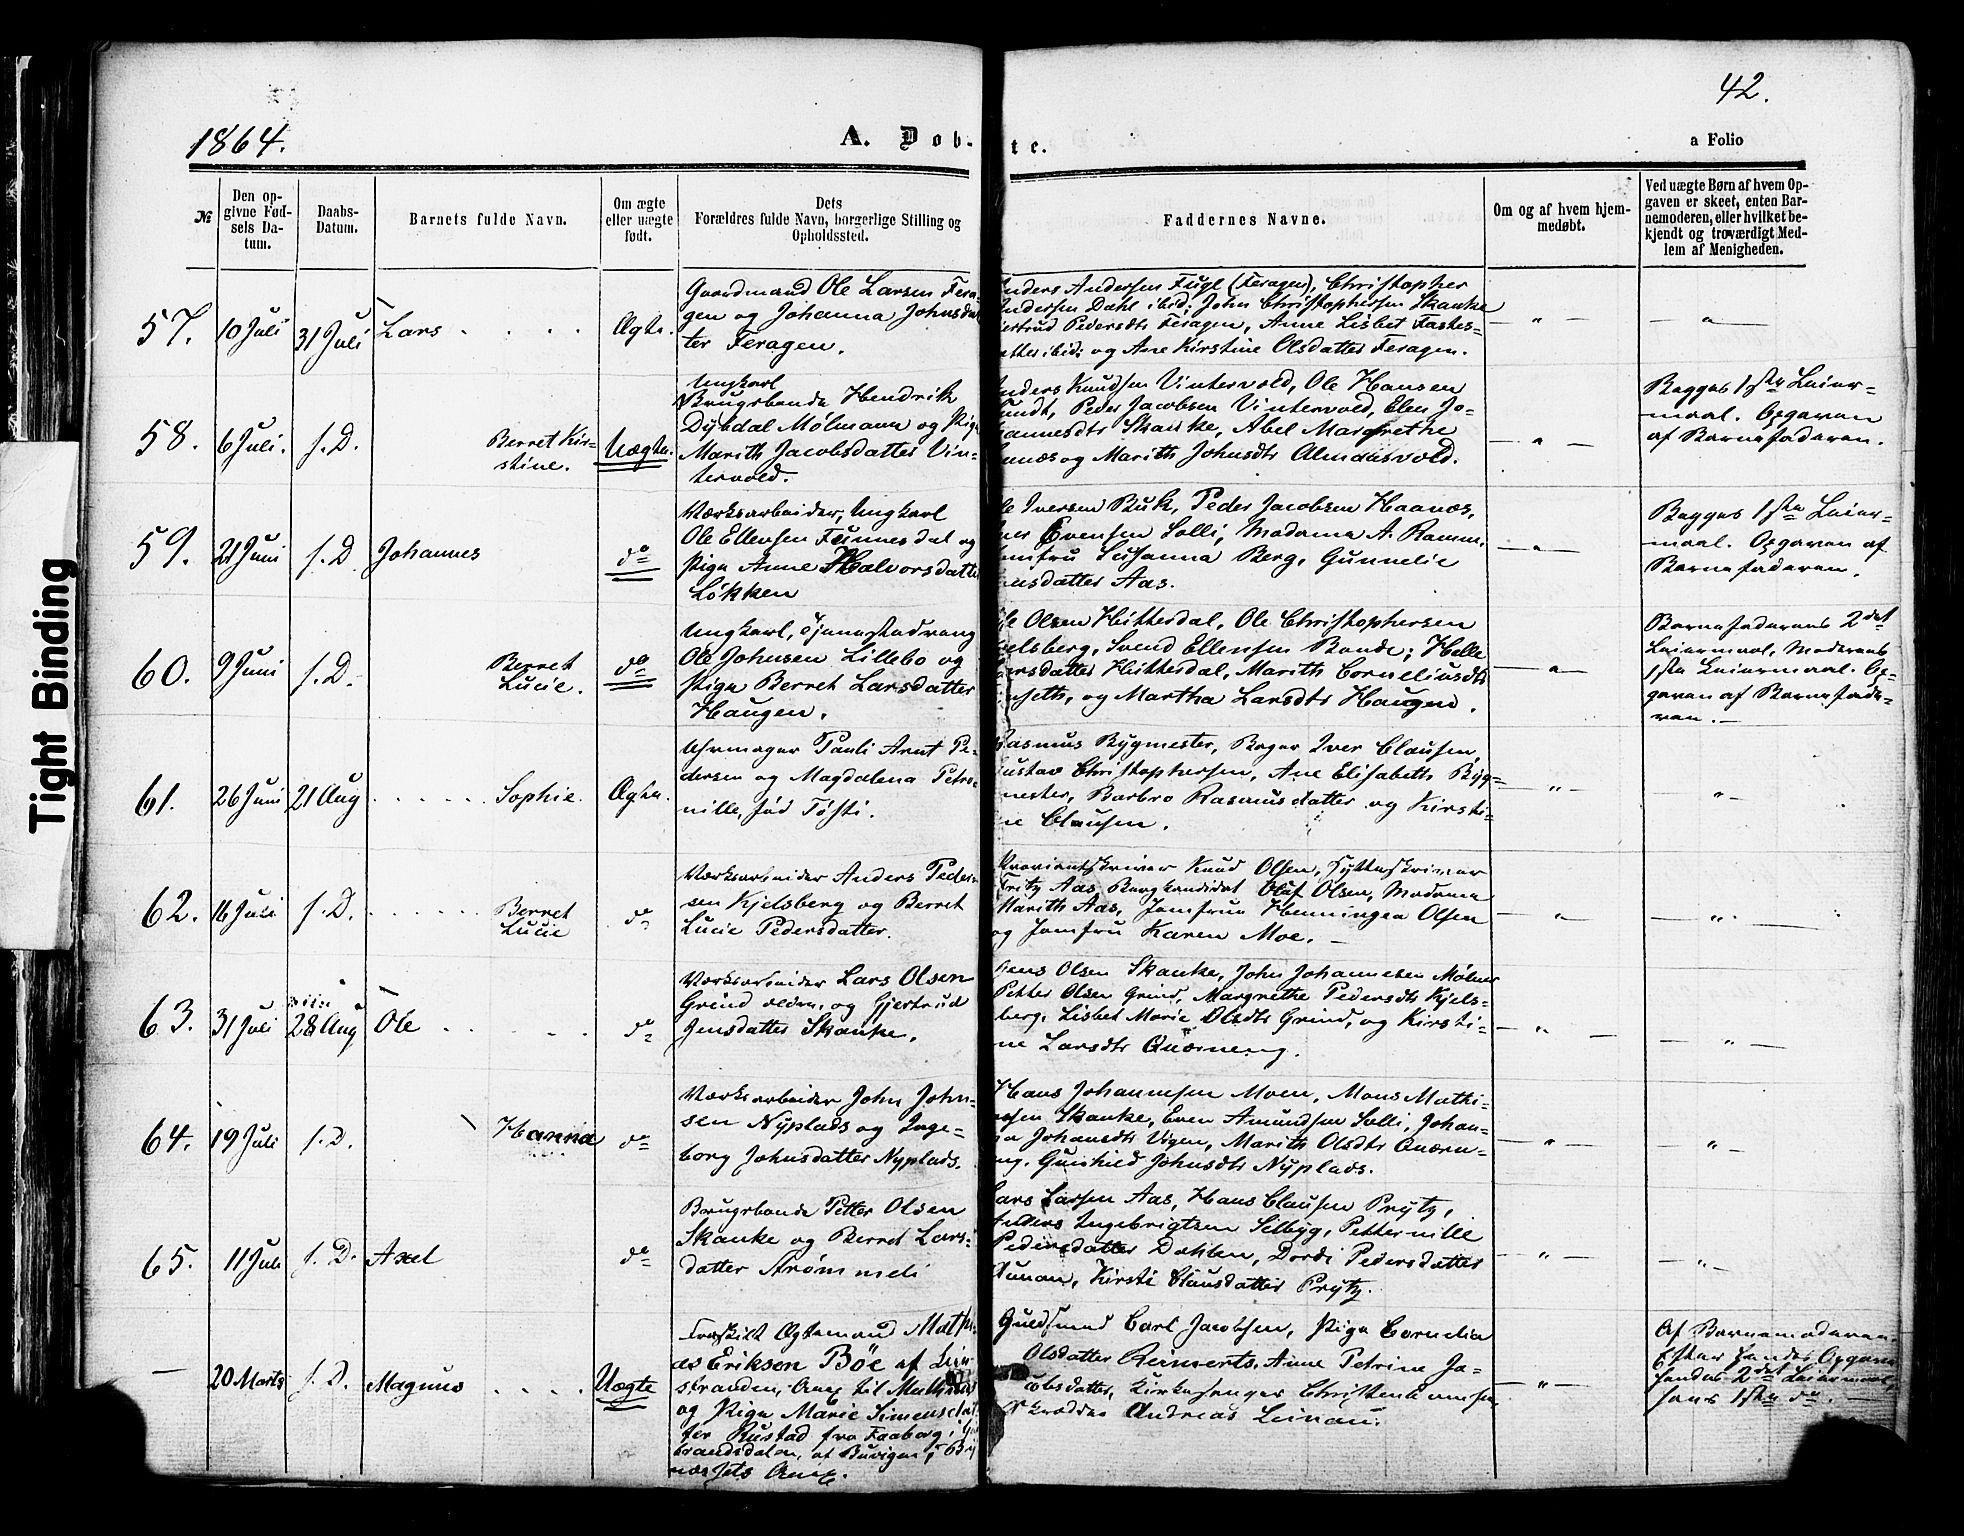 42.
1864.
A. Døb-
te.
a Folio
№
Den op-
givne Fød-
sels Da-
tum.
Daabs-
Datum.
Barnets fulde Navn.
Om ægte
eller uægte
født.
Dets
Forældres fulde Navn, borgerlige Stilling og
Opholdssted.
Faddernes Navne.
Om og af hvem hjem-
medøbt.
Ved uægte Børn af hvem Op-
gaven er skeet, enten Bar-
nemoderen, eller hvilket be-
kjendt og troværdigt Med-
lem af Menigheden.
57.
10 Juli
31 Juli
Lars
Ægte.
Gaardmand Ole Larsen Fera-
gen og Johanna Johnsdat
ter Feragen.
Anders Andersen Fugl (Feragen), Christopher
Andersen Dahl ibid; John Christophersen Skanke
Pedersdtr Feragen, Anne Lisbet
ibid; og Ane Kirstine Olsdatter Feragen.
58.
6 Juli.
s. D.
Berret Kir-
stine.
Uægte.
Ungkarl
Brugsbonde Hendrik
Dybdal Mølmann og Pige
Marith Jacobsdatter Vin-
tervold.
Anders Knudsen Vintervold, Ole Hansen
Peder Jacobsen Vintervold, Elen Jo-
hannesdtr Skanke, Abel Margrethe
og Marith Johnsdtr Almaasvold.
Begges 1ste Leier-
maal. Opgaven
af Barnefaderen.
59.
21 Juni
s. D.
Johannes
do
Værksarbeider, Ungkarl
Ole Ellensen Funnesdal og
Pige Anne Halvorsdatter
Løkken
Ole Iversen Buk, Peder Jacobsen Haanæs,
Evensen Solli, Madame A. Ramm,
Jomfru Susanna Berg, Gunnelie
datter Aas.
Begges 1ste Leier-
maal. Opgaven af
Barnefaderen.
60.
9 Juni
s. D.
Berret
Lucie.
do
Ungkarl, Tjenestedreng
Ole Johnsen Lillebo og
Pige Berret Larsdatter
Haugen.
Ole Olsen Hitterdal, Ole Christophersen
Svend Ellensen Bonde; Helle
Larsdatter Hitterdal, Marith Corneliusdtr
og Martha Larsdtr Haugen.
Barnefaderens 2det
Leiermaal, Moderens
1ste Leiermaal. Op-
gaven af Barnefade-
ren.
61.
26 Juni
21 Aug
Sophie.
Ægte.
Uhrmager Pauli Arnt Pe-
dersen og Magdalena Petro-
nille, fød Tøfti.
Rasmus Bygmester, Bager Iver Clausen,
Gustav Christophersen, Ane Elisabeth Byg-
mester, Barbro Rasmusdatter og Kirsti-
ne Clausen.
62.
16 Juli
s. D.
Berret
Lucie
do
Værksarbeider Anders Peder-
sen Kjelsberg og Berret
Lucie Pedersdatter.
Proviantskriver Knud Olsen, Hytteskriver
Fritz Aas, Bergkandidat Oluf Olsen, Madame
Marith Aas, Jomfrue Henningea Olsen
og Jomfru Karen Moe.
63.
31 Juli
28 Aug
Ole
do
Værksarbeider Lars Olsen
Grind ældre, og Gjertrud
Jensdatter Skanke.
Jens Olsen Skanke, John Johannesen Mølm
Petter Olsen Grind, Margrethe Pedersdtr Kjels-
berg, Lisbet Marie Olsdtr Grind, og Kirsti-
ne Larsdtr Quærneng.
64.
19 Juli
s. D.
Hanna
do
Værksarbeider John John-
sen Nyplads og Inge-
borg Johnsdatter Nyplads.
Hans Johannesen Moen, Mons Mathi-
Skanke, Even Amundsen Solli, Johan-
Johansdtr Vigen, Marith Olsdtr Quærn-
eng, Gunhild Johnsdtr Nyplads.
65.
11 Juli
s. D.
Axel
do
Brugsbonde Petter Olsen
Skanke og Berret Lars-
datter Strømmeli
Lars Larsen Aas, Hans Clausen Prytz,
Ingebrigtsen Selbyg, Petternille
Pedersdatter Dahlen, Dordi Pedersdatter
Kirsti Clausdatter Prytz.
20 Marts
s. D.
Magnus
Uægte
Fraskilt Ægtemand Mathi-
as Eriksen Böe af Lein-
stranden, Anex til Melhus
og Pige Marie Simensdat
ter Rustad fra Faaberg i Gul
brandsdalen, af Buvigen, By
næssets Anex.
Guldsmed Carl Jacobsen, Pige Cornelia
Olsdatter Reinerts, Anne Petrine Ja-
cobsdatter, Kirkesanger Christen
Skrædder Andreas Leinau.
Af Barnemoderen.
Efter hendes Opgave
hendes 2det Leiermaal,
hans 1ste do.
Tight Binding